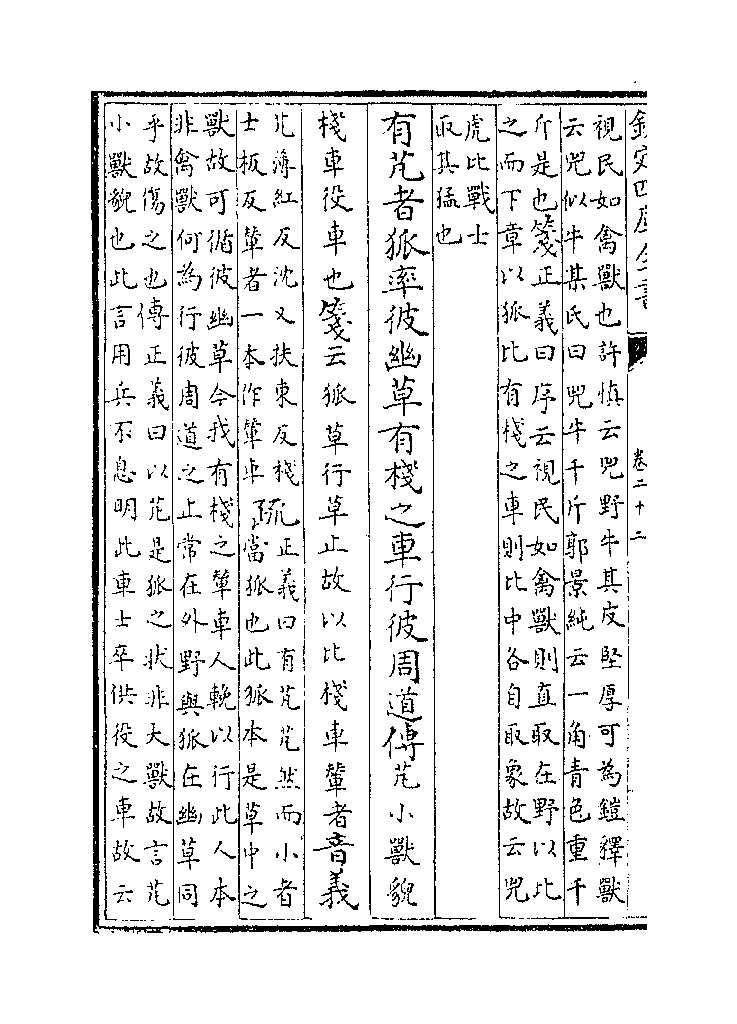 欽定四庫全書
卷二十二
視民如禽獸也許慎云兕野牛其皮堅厚可為鎧釋獸
云兕似牛某氏曰兕牛千斤郭景純云一角青色重千
斤是也箋正義曰序云視民如禽獸則直取在野以比
之而下章以狐比有棧之車則比中各自取象故云兕
虎比戰士
取其猛也
有芃者狐率彼幽草有棧之車行彼周道傳芃小獸貌
棧車役車也箋云狐草行草止故以比棧車輦者音義
芃薄紅反沈又扶東反棧
士板反輦者一本作輦車
疏
正義曰有芃芃然而小者
當狐也此狐本是草中之
獸故可循彼幽草今我有棧之輦車人輓以行此人本
非禽獸何為行彼周道之止常在外野與狐在幽草同
乎故傷之也傳正義曰以芃是狐之狀非大獸故言芃
小獸貌也此言用兵不息明此車士卒供役之車故云